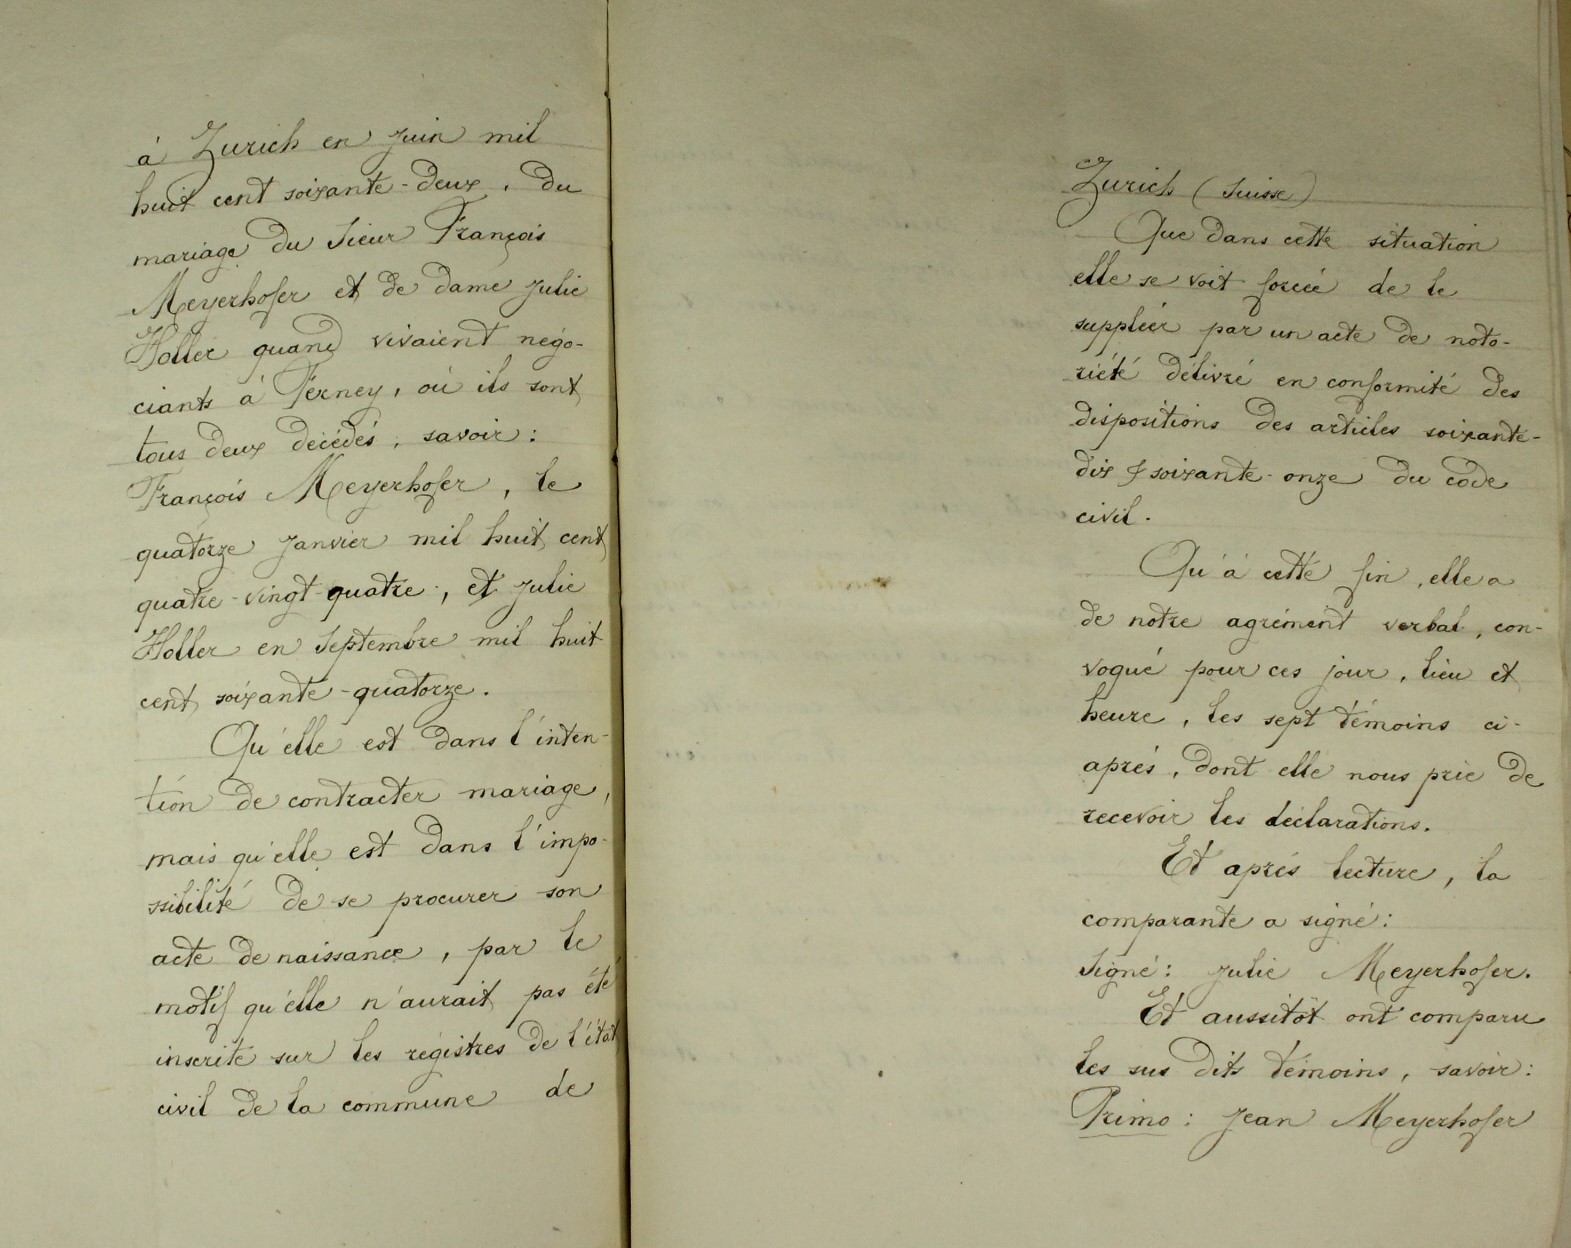 à Zurich en juin mil
huit cent soixante-deux, du
mariage du sieur François
Meyerhofer et de dame Julie
Holler quand vivaient négo-
ciants à Ferney, où ils sont
tous deux décédés, savoir:
François Meyerhofer, le
quatorze janvier mil huit cent
quatre-vingt-quatre, et Julie
Holler en Septembre mil huit
cent soixante-quatorze.
Qu'elle est dans l'inten-
tion de contracter mariage,
mais qu'elle est dans l'impo-
ssibilité de se procurer son
acte de naissance, par le
motif qu'elle n'aurait pas été
inscrite sur les registres de l'état
civil de la commune de
Zurich (Suisse)
Que dans cette situation
elle se voit forcée de le
suppléer par un acte de noto-
riété délivré en conformité des
dispositions des articles soixante-
dix & soixante-onze du code
civil.
Qu'à cette fin, elle a
de notre agrément verbal, con-
voqué pour ces jour, lieu et
heure, les sept témoins ci-
après, dont elle nous prie de
recevoir les déclarations.
Et après lecture, la
comparante a signé:
Signé: Julie Meyerhofer.
Et aussitôt ont comparu
les sus dits témoins, savoir:
Primo: Jean Meyerhofer